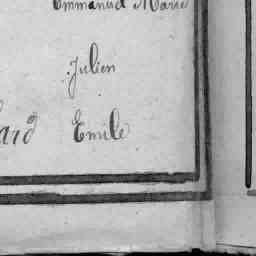 Emmanuel Marie
Julien
ard Emile